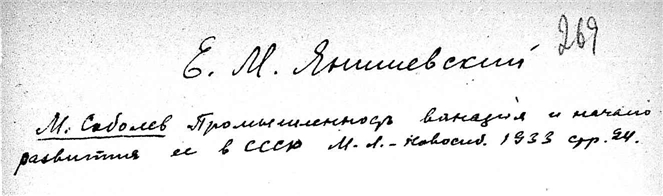 269
Е. М. Янишевский
М. Соболев Промышленность ванадия и начало
развития ее в СССР М. Л. - Новосиб. 1933 стр. 94.